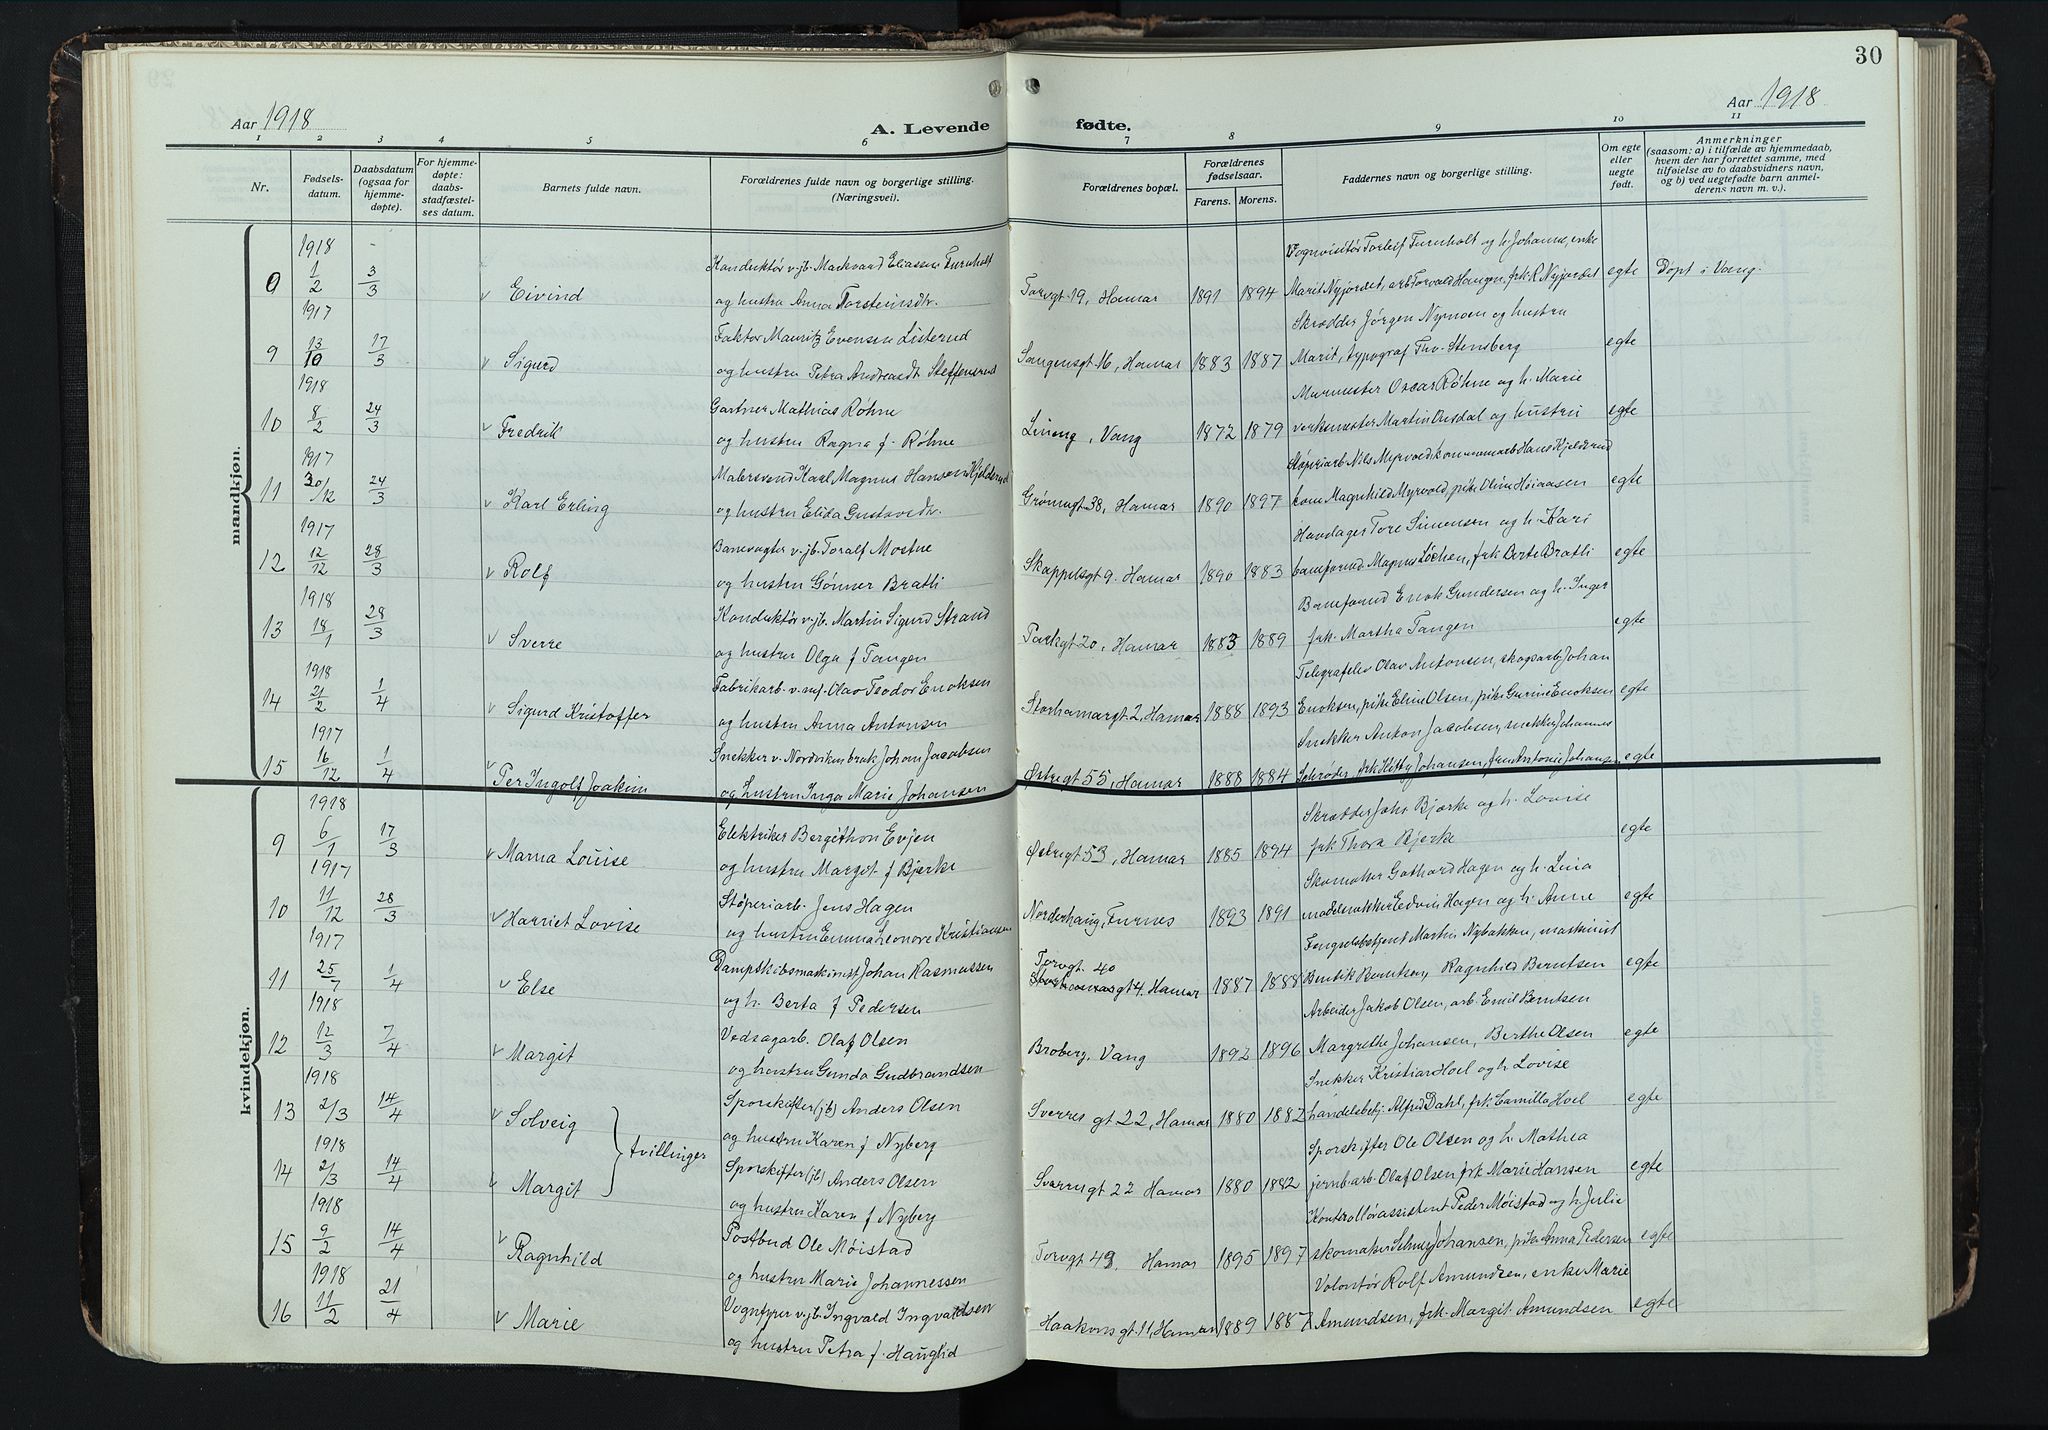 30
Aar 1918
A. Levende fødte.
Aar 1918
1 2 3 4 5 6 7 8 9 10 11
Nr.
Fødsels-
datum.
Daabsdatum
(ogsaa for
hjemme-
døpte).
For hjemme-
døpte:
daabs-
stadfæstel-
ses datum.
Barnets fulde navn.
Forældrenes fulde navn og borgerlige stilling.
(Næringsvei).
Forældrenes bopæl.
Forældrenes
fødselsaar.
Farens. Morens.
Faddernes navn og borgerlige stilling.
Om egte
eller
uegte
født.
Anmerkninger
(saasom: a) i tilfælde av hjemmedaab,
hvem der har forrettet samme, med
tilføielse av to daabsvidners navn,
og b) ved uegtefødte barn anmel-
derens navn m. v.).
mandkjøn.
1918 Konduktør v. jb. Markvard Eliassen Furnholt Vognvisitør Torleif Furnholt og h. Johanne, enke
1/2 3/3 v Eivind og hustru Anna Torsteinsdtr. Torvgt. 19, Hamar 1891 1894 Marit Nyjordet, arb Torvald Haugen, frk. R. Nyjordet egte Døpt i Vang.
1917 Faktor Mauritz Evensen Listerud Skrædder Jørgen Nymoen og hustru
9 13/10 17/3 v Sigurd og hustru Petra Andreasdt Steffensrud 16, Hamar 1883 1887 Marit, typograf Thv. Stensberg egte
1918 Gartner Mathias Røhne Murmester Oscar Røhne og h. Marie
10 8/2 24/3 v Fredrik og hustru Ragna f. Røhne Lieng, Vang 1872 1879 verksmester Martin Ousdal og hustru egte
1917 Malersvend Karl Magnus Hansen Kjelderud Støperiarb. Nils Myrvold kommunearb Hans Kjelderud
11 30/12 24/3 v Karl Erling og hustru Elida Gustavsdtr. Grønnegt. 38, Hamar 1890 1897 kone Magnhild Myrvold, pike Oline Høiaasen egte
1917 Banevogter v. jb. Toralf Mostue Havelager Tore Simensen og h. Kari
12 12/12 28/3 v Rolf og hustru Gønner Bratli Skappelsgt 9. Hamar 1890 1883 baneformd. Magnus Løchen, frk Berte Bratli egte
1918 Konduktør v. jb. Martin Sigurd Strand Baneformd Enok Gundersen og h. Inger
13 18/1 28/3 v Sverre og hustru Olga f Tangen Parkgt 20, Hamar 1883 1889 frk. Martha Tangen egte
1918 Fabrikarb. v. mf. Olav Teodor Enoksen Telegrafelev Olav Antonsen, skogsarb Johan
14 21/2 1/4 v Sigurd Kristoffer og hustru Anna Antonsen Storhamargt 2, Hamar 1888 1893 Enoksen, pike Eline Olsen, pike Gurine Enoksen egte
1917 Snekker v. Nordviken bruk Johan Jacobsen Snekker Anton Jacobsen, snekker Johannes
15 16/12 1/4 v Per Ingolf Joakim og hustru Inga Marie Johansen Østregt 55, Hamar 1888 1884 Schrøder, frk Kitty Johansen, frk Antonie Johansen egte
kvindekjøn.
1918 Elektriker Bergithon Evjen Skrædder Johs Bjerke og h. Lovise
9 6/1 17/3 v Marna Louise og hustru Margit f Bjerke Østregt 53, Hamar 1885 1894 frk. Thora Bjerke egte
1917 Støperiarb. Jens Hagen Skomaker Gothard Hagen og h. Lina
10 11/12 28/3 v Harriet Lovise og hustru Emma Leonore Kristiansen Norderhaug, Furnes 1893 1891 modelsnekker Edvin Hagen og h. Anne egte
1917 Dampskibsmaskinist Johan Rasmussen Torvgt. 40 Fengselsbetjent Martin Nybakken, maskinist
11 25/7 1/4 v Else og h. Berta f Pedersen gt 4. Hamar 1887 1888 Bentik Berntsen, Ragnhild Berntsen egte
1918 Vedsagarb. Olaf Olsen Arbeider Jakob Olsen, arb. Emil Berntsen
12 12/3 7/4 v Margit og hustru Gunda Gudbrandsen Broberg, Vang 1892 1896 Margrethe Johansen, Berthe Olsen egte
1918 Sporskifter (jb) Anders Olsen Snekker Kristian Hoel og h. Lovise
13 2/3 14/4 v Solveig og hustru Karen f Nyberg Sverres gt 22, Hamar 1880 1882 handelsbetj. Alfred Dahl, frk. Camilla Hoel egte
tvillinger
1918 Sporskifter (jb) Anders Olsen Sporskifter Ole Olsen og h. Mathea
14 2/3 14/4 v Margit og hustru Karen f Nyberg Sverresgt 22 Hamar 1880 1882 jernb arb. Olaf Olsen frk Marie Hansen egte
1918 Postbud Ole Møistad Kontrollørassistent Peder Møistad og h. Julie
15 9/2 14/4 v Ragnhild og hustru Marie Johannessen Torvgt 49, Hamar 1895 1897 skomaker Selmer Johansen, pike Anna Pedersen egte
1918 Vognfyrer v. jb Ingvald Ingvaldsen Volontør Rolf Amundsen, enke Marie
16 11/2 21/4 v Marie og hustru Petra f. Hauglid Haakonsgt. 11, Hamar 1889 1887 Amundsen, frk. Margit Amundsen egte